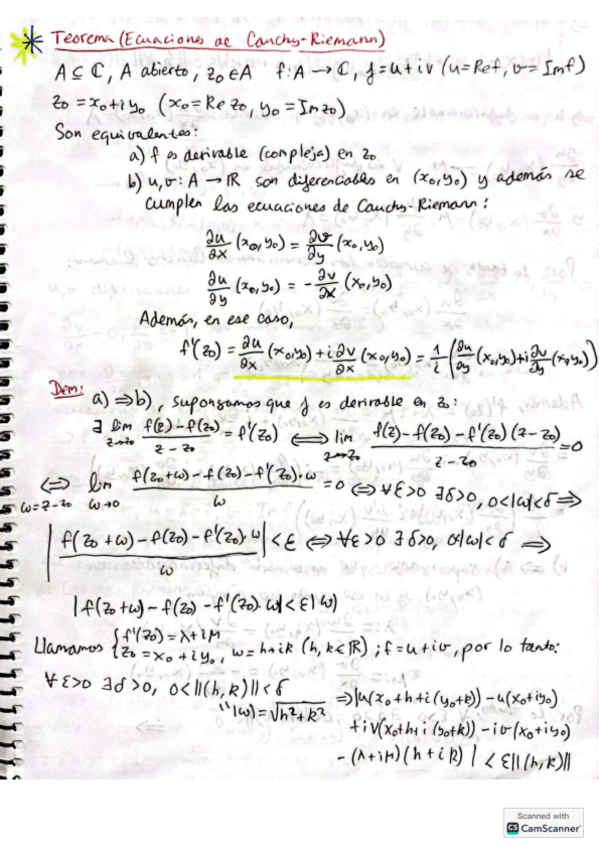 Teorema (Ecuaciones de Cauchy-Riemann)
A ⊆ ℂ, A abierto, z₀ ∈ A   f: A → ℂ, f = u + iv (u = Re f, v = Im f)
z₀ = x₀ + i y₀ (x₀ = Re z₀, y₀ = Im z₀)
Son equivalentes:
a) f es derivable (compleja) en z₀
b) u, v: A → ℝ son diferenciables en (x₀, y₀) y además se
cumplen las ecuaciones de Cauchy-Riemann:
∂u/∂x (x₀, y₀) = ∂v/∂y (x₀, y₀)
∂u/∂y (x₀, y₀) = - ∂v/∂x (x₀, y₀)
Además, en ese caso,
f'(z₀) = ∂u/∂x (x₀, y₀) + i ∂v/∂x (x₀, y₀) = 1/i (∂u/∂y (x₀, y₀) + i ∂v/∂y (x₀, y₀))
Dem: a) ⇒ b), supongamos que f es derivable en z₀:
∃ lim z→z₀ (f(z) - f(z₀))/(z - z₀) = f'(z₀) ⇔ lim z→z₀ (f(z) - f(z₀) - f'(z₀)(z - z₀))/(z - z₀) = 0
⇔ w = z - z₀ lim w→0 (f(z₀+w) - f(z₀) - f'(z₀)·w)/w = 0 ⇔ ∀ε>0 ∃δ>0, 0<|w|<δ ⇒
|(f(z₀+w) - f(z₀) - f'(z₀)·w)/w| < ε ⇔ ∀ε>0 ∃δ>0, 0<|w|<δ ⇒
|f(z₀+w) - f(z₀) - f'(z₀)·w| < ε|w|
Llamamos { f'(z₀) = λ + iμ
z₀ = x₀ + i y₀, w = h + ik (h, k ∈ ℝ) ; f = u + iv, por lo tanto:
∀ε>0 ∃δ>0, 0<||(h, k)||<δ
"|w| = √(h² + k²)
⇒ |u(x₀+h+i(y₀+k)) - u(x₀+iy₀)
+ iv(x₀+h+i(y₀+k)) - iv(x₀+iy₀)
- (λ+iμ)(h+ik)| < ε||(h, k)||
Scanned with
CS CamScanner